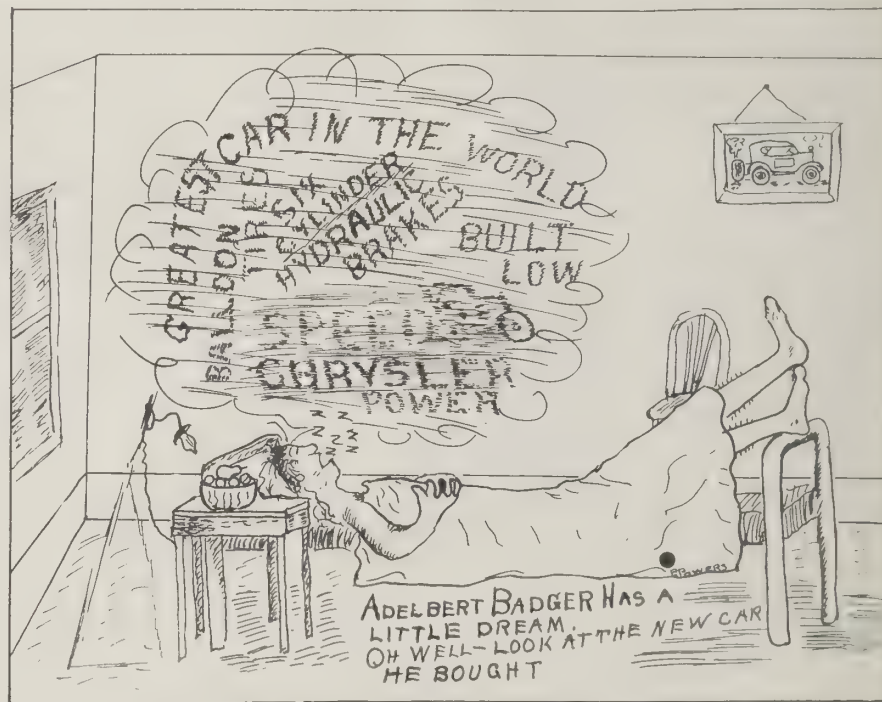 GREATEST CAR IN THE WORLD
BALLOON TIRES
SIX
CYLINDER
HYDRAULIC
BRAKES
BUILT
LOW
SPEED
CHRYSLER
POWER
Z Z Z
Z Z
Z Z Z
P.POWERS
ADELBERT BADGER HAS A
LITTLE DREAM.
OH WELL-LOOK AT THE NEW CAR
HE BOUGHT